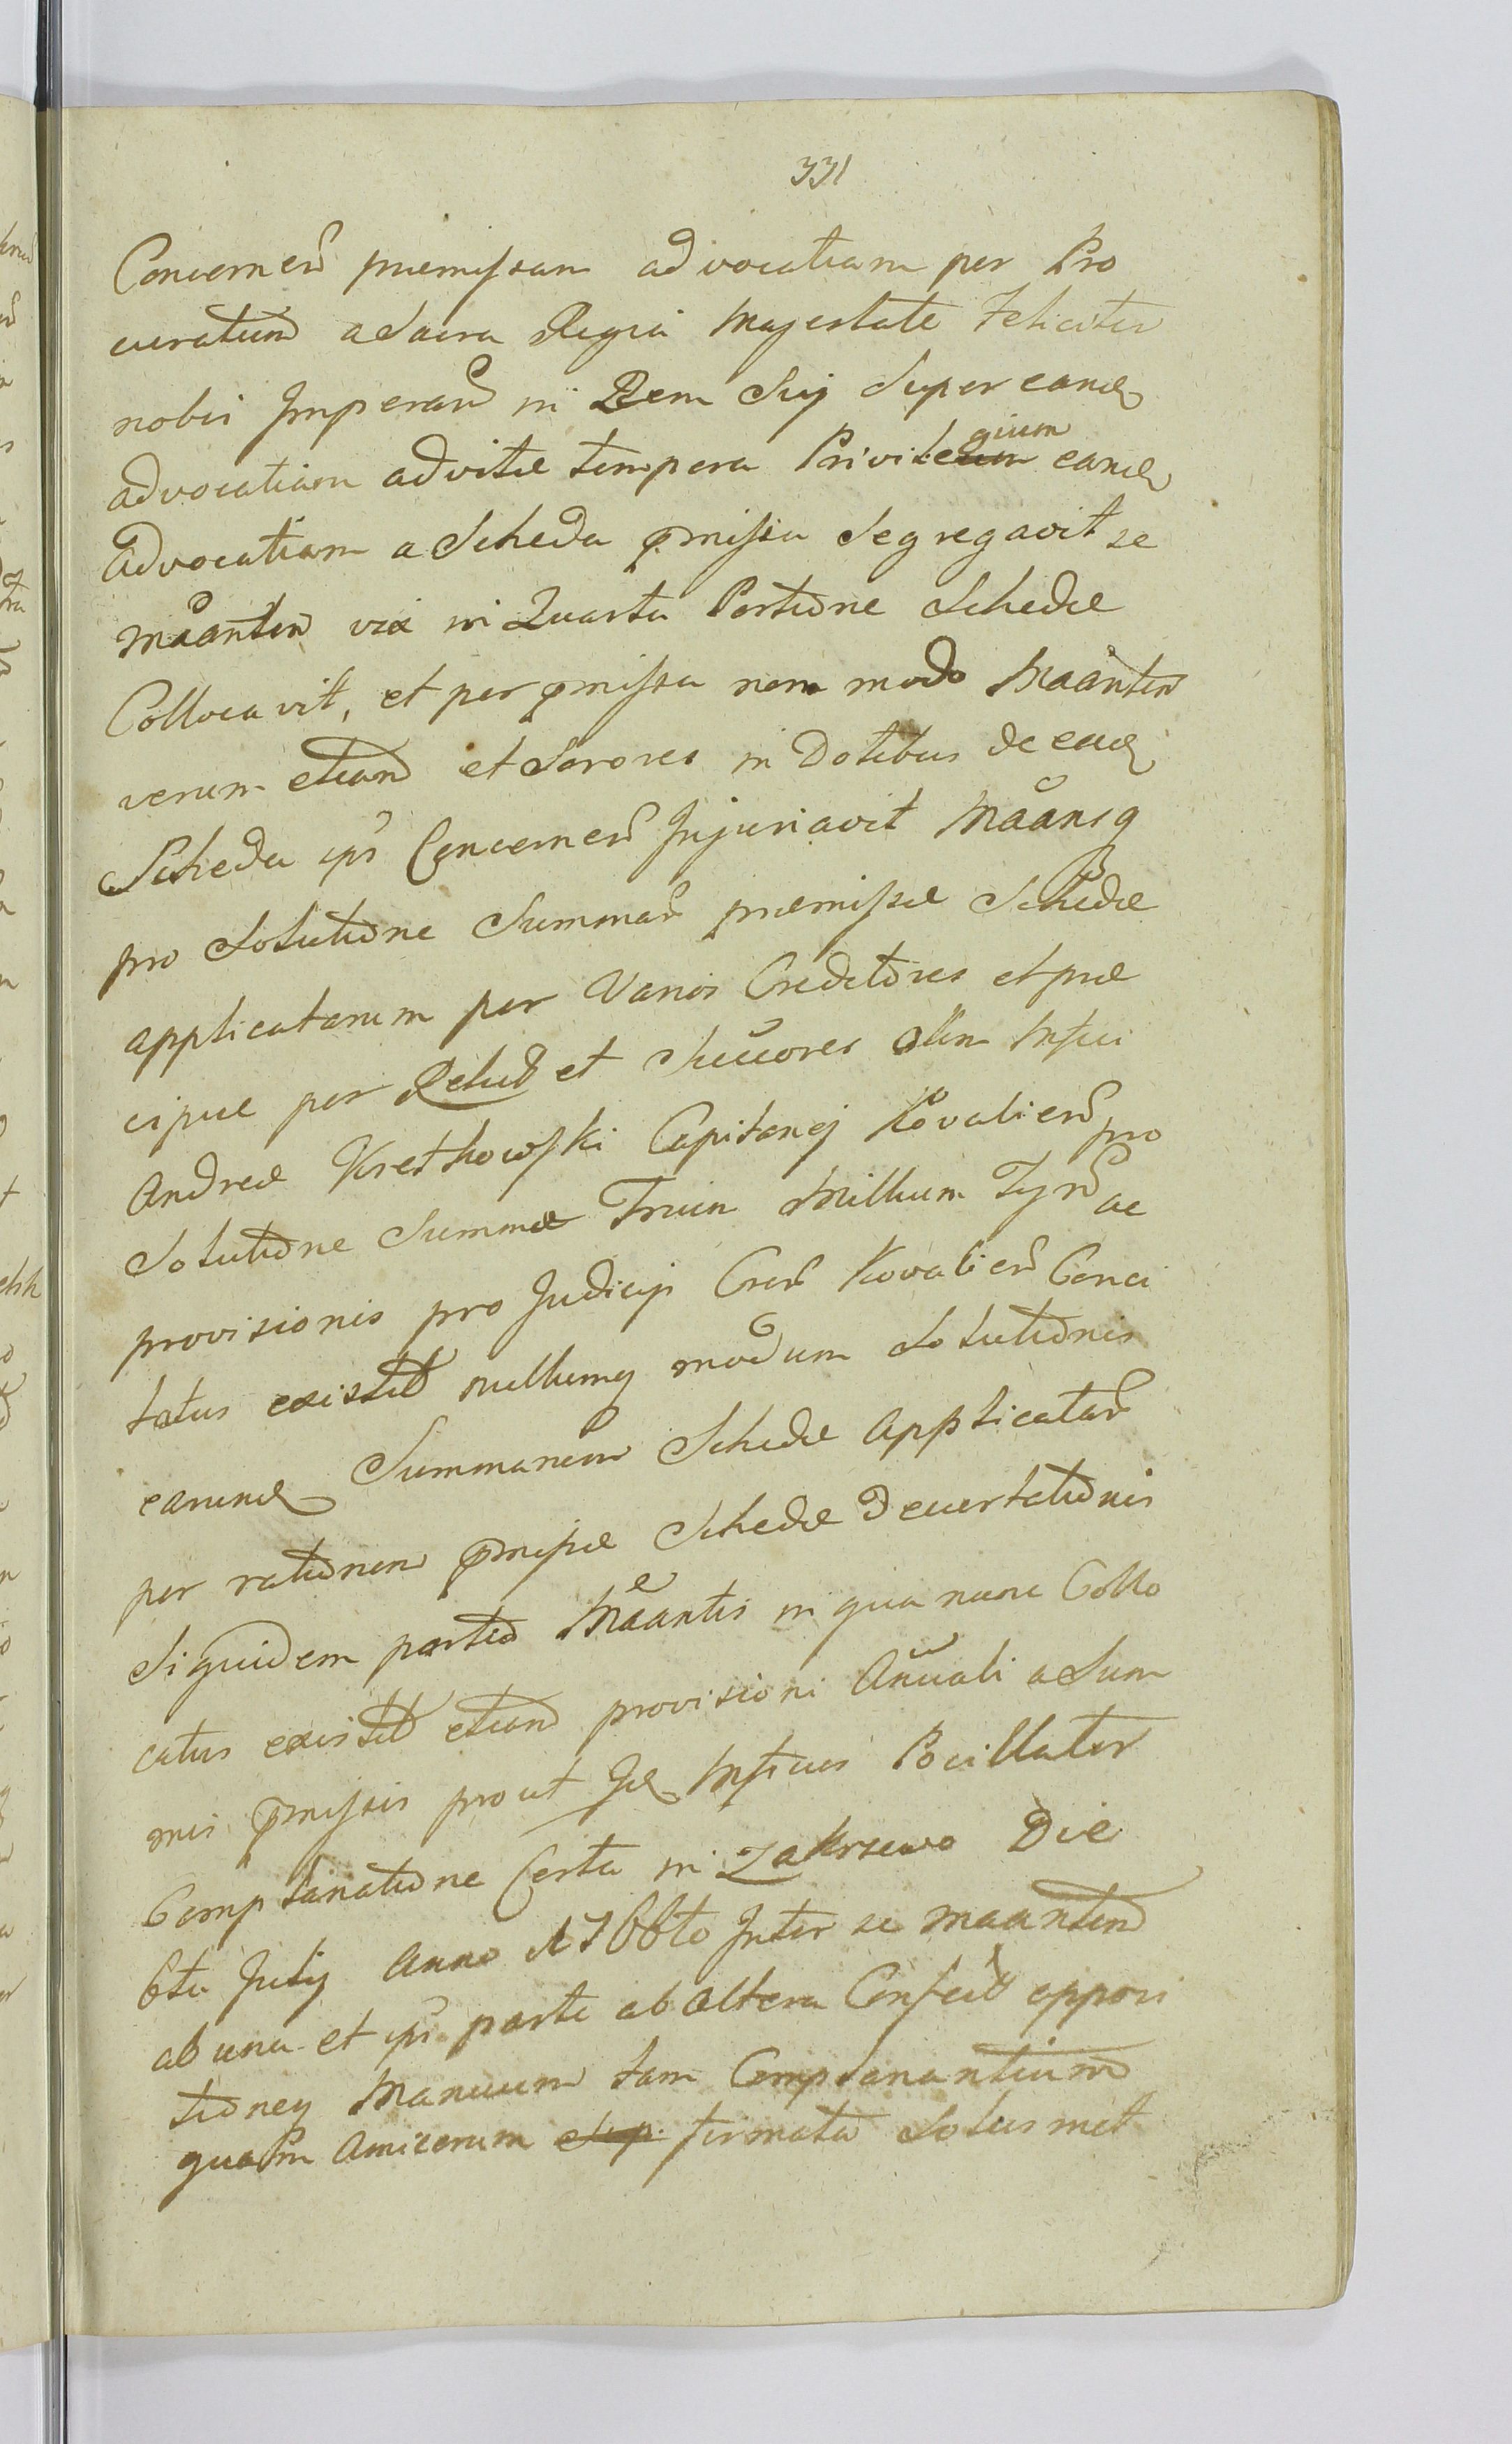 331
Concernen premissam advocatiam per Pro
curatum a Sacra Regia Majestate Feliciter
nobis Imperan in Rem Sui Super eand
advocatiam ad vitæ tempora Privilegium eand
Advocatiam a Scheda pmissa Segregavit se
Maanten vix in Quarta Portione Schedæ
Collocavit, et per pmissa non modo Maanten
verum etiam et Sorores in Dotibus de ead
Scheda ips Concernen Injuriavit Maansq
pro Solutione Summar præmissæ Schedæ
applicatarum per Varios Creditores et præ
cipue per Relict et Succores olim Mfici
Andreæ Kretkowski Capitanei Kovalien pro
Solutione Summæ Trium Millium Tynf ac
provisionis pro Judicijs Cren Kovalien Conci
tatus existit nullumq modum Solutionis
earund Summarum Schedæ Applicatar
per rationem pmissæ Schedæ Devastationis
Siquidem portio Maantis in qua nunc Collo
catus existit etiam provisioni Annuali a Sum
mis pmissis prout Id Mficus Pocillator
Complanatione Certa in Zakrzewo Die
6ta July Anno 1766to Inter se maanten
ab una et ips parte ab Altera Confect apposi
tioneq Manuum tam Complanantium
quam Amicorum firmata Solusmet